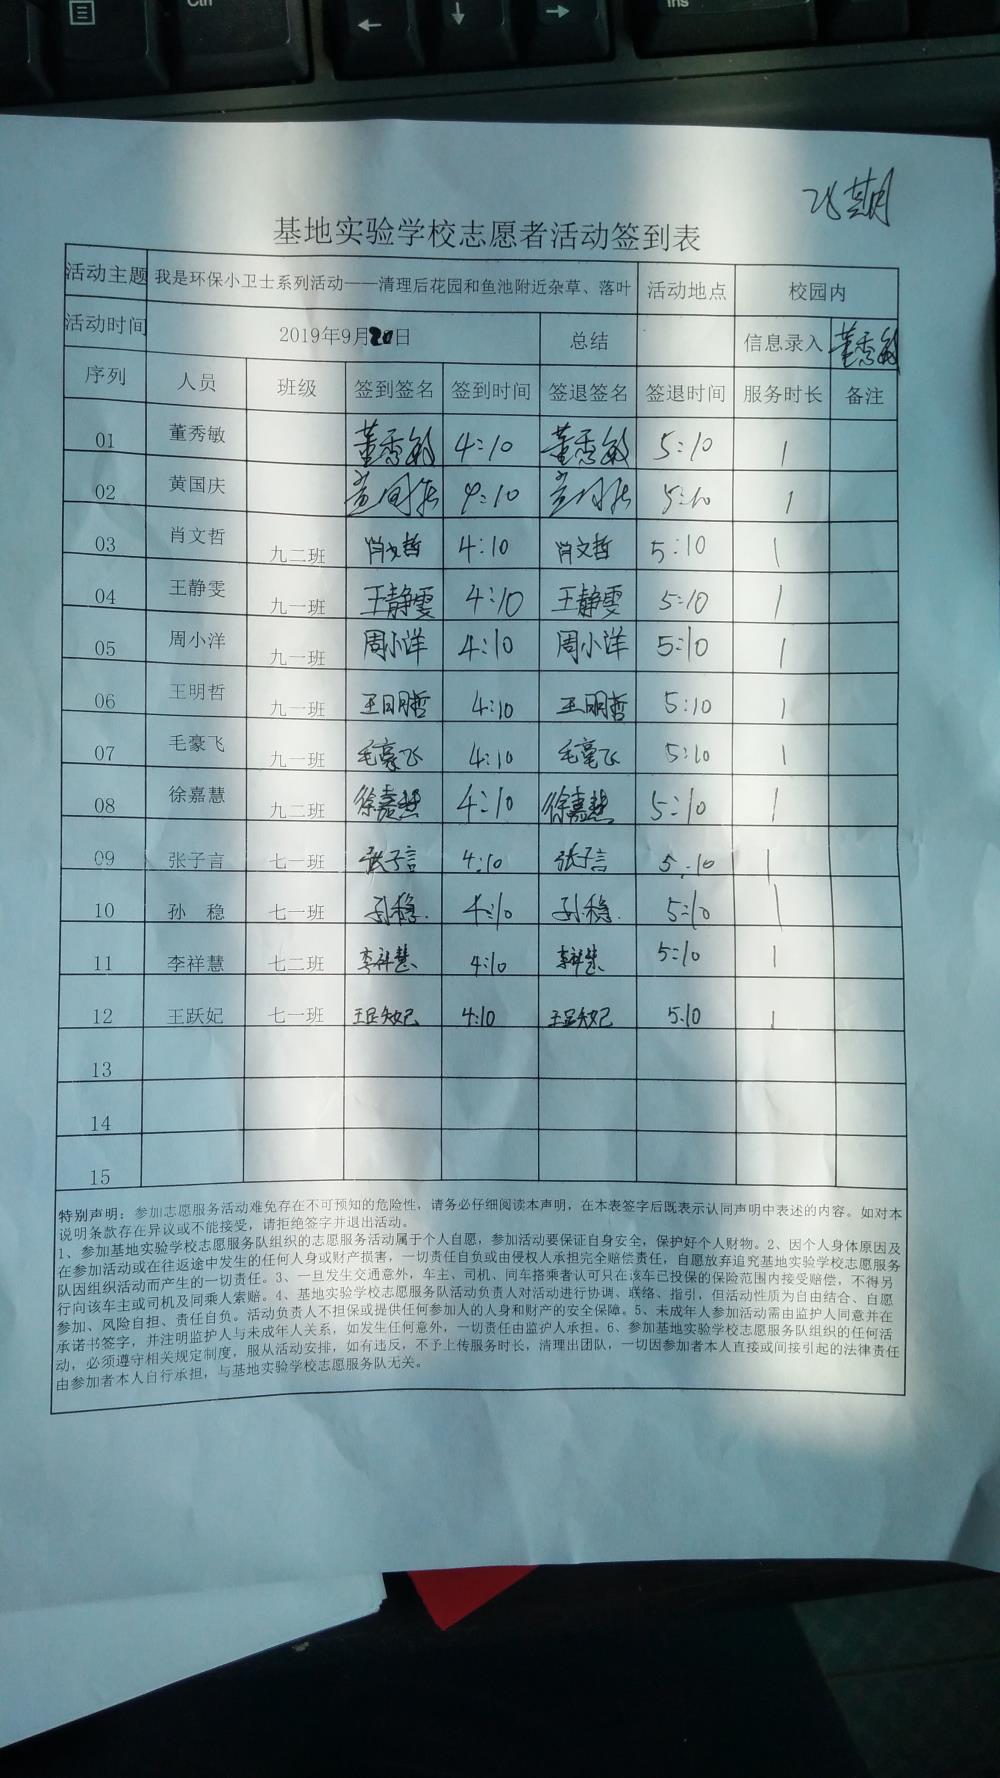 Ctrl
Ins
28期
基地实验学校志愿者活动签到表
活动主题 我是环保小卫士系列活动——清理后花园和鱼池附近杂草、落叶 活动地点 校园内
活动时间 2019年9月20日 总结 信息录入 董秀敏
序列 人员 班级 签到签名 签到时间 签退签名 签退时间 服务时长 备注
01 董秀敏 董秀敏 4:10 董秀敏 5:10 1
02 黄国庆 黄国庆 4:10 黄国庆 5:10 1
03 肖文哲 九二班 肖文哲 4:10 肖文哲 5:10 1
04 王静雯 九一班 王静雯 4:10 王静雯 5:10 1
05 周小洋 九一班 周小洋 4:10 周小洋 5:10 1
06 王明哲 九一班 王明哲 4:10 王明哲 5:10 1
07 毛豪飞 九一班 毛豪飞 4:10 毛豪飞 5:10 1
08 徐嘉慧 九二班 徐嘉慧 4:10 徐嘉慧 5:10 1
09 张子言 七一班 张子言 4:10 张子言 5:10 1
10 孙 稳 七一班 孙稳. 4:10 孙稳. 5:10 1
11 李祥慧 七二班 李祥慧 4:10 李祥慧 5:10 1
12 王跃妃 七一班 王跃妃 4:10 王跃妃 5:10 1
13
14
15
特别声明：参加志愿服务活动难免存在不可预知的危险性，请务必仔细阅读本声明，在本表签字后既表示认同声明中表述的内容。如对本
说明条款存在异议或不能接受，请拒绝签字并退出活动。
1、参加基地实验学校志愿服务队组织的志愿服务活动属于个人自愿，参加活动要保证自身安全，保护好个人财物。2、因个人身体原因及
在参加活动或在往返途中发生的任何人身或财产损害，一切责任自负或由侵权人承担完全赔偿责任，自愿放弃追究基地实验学校志愿服务
队因组织活动而产生的一切责任。3、一旦发生交通意外，车主、司机、同车搭乘者认可只在该车已投保的保险范围内接受赔偿，不得另
行向该车主或司机及同乘人索赔。4、基地实验学校志愿服务队活动负责人对活动进行协调、联络、指引，但活动性质为自由结合、自愿
参加、风险自担、责任自负。活动负责人不担保或提供任何参加人的人身和财产的安全保障。5、未成年人参加活动需由监护人同意并在
承诺书签字，并注明监护人与未成年人关系，如发生任何意外，一切责任由监护人承担。6、参加基地实验学校志愿服务队组织的任何活
动，必须遵守相关规定制度，服从活动安排，如有违反，不予上传服务时长，清理出团队，一切因参加者本人直接或间接引起的法律责任
由参加者本人自行承担，与基地实验学校志愿服务队无关。